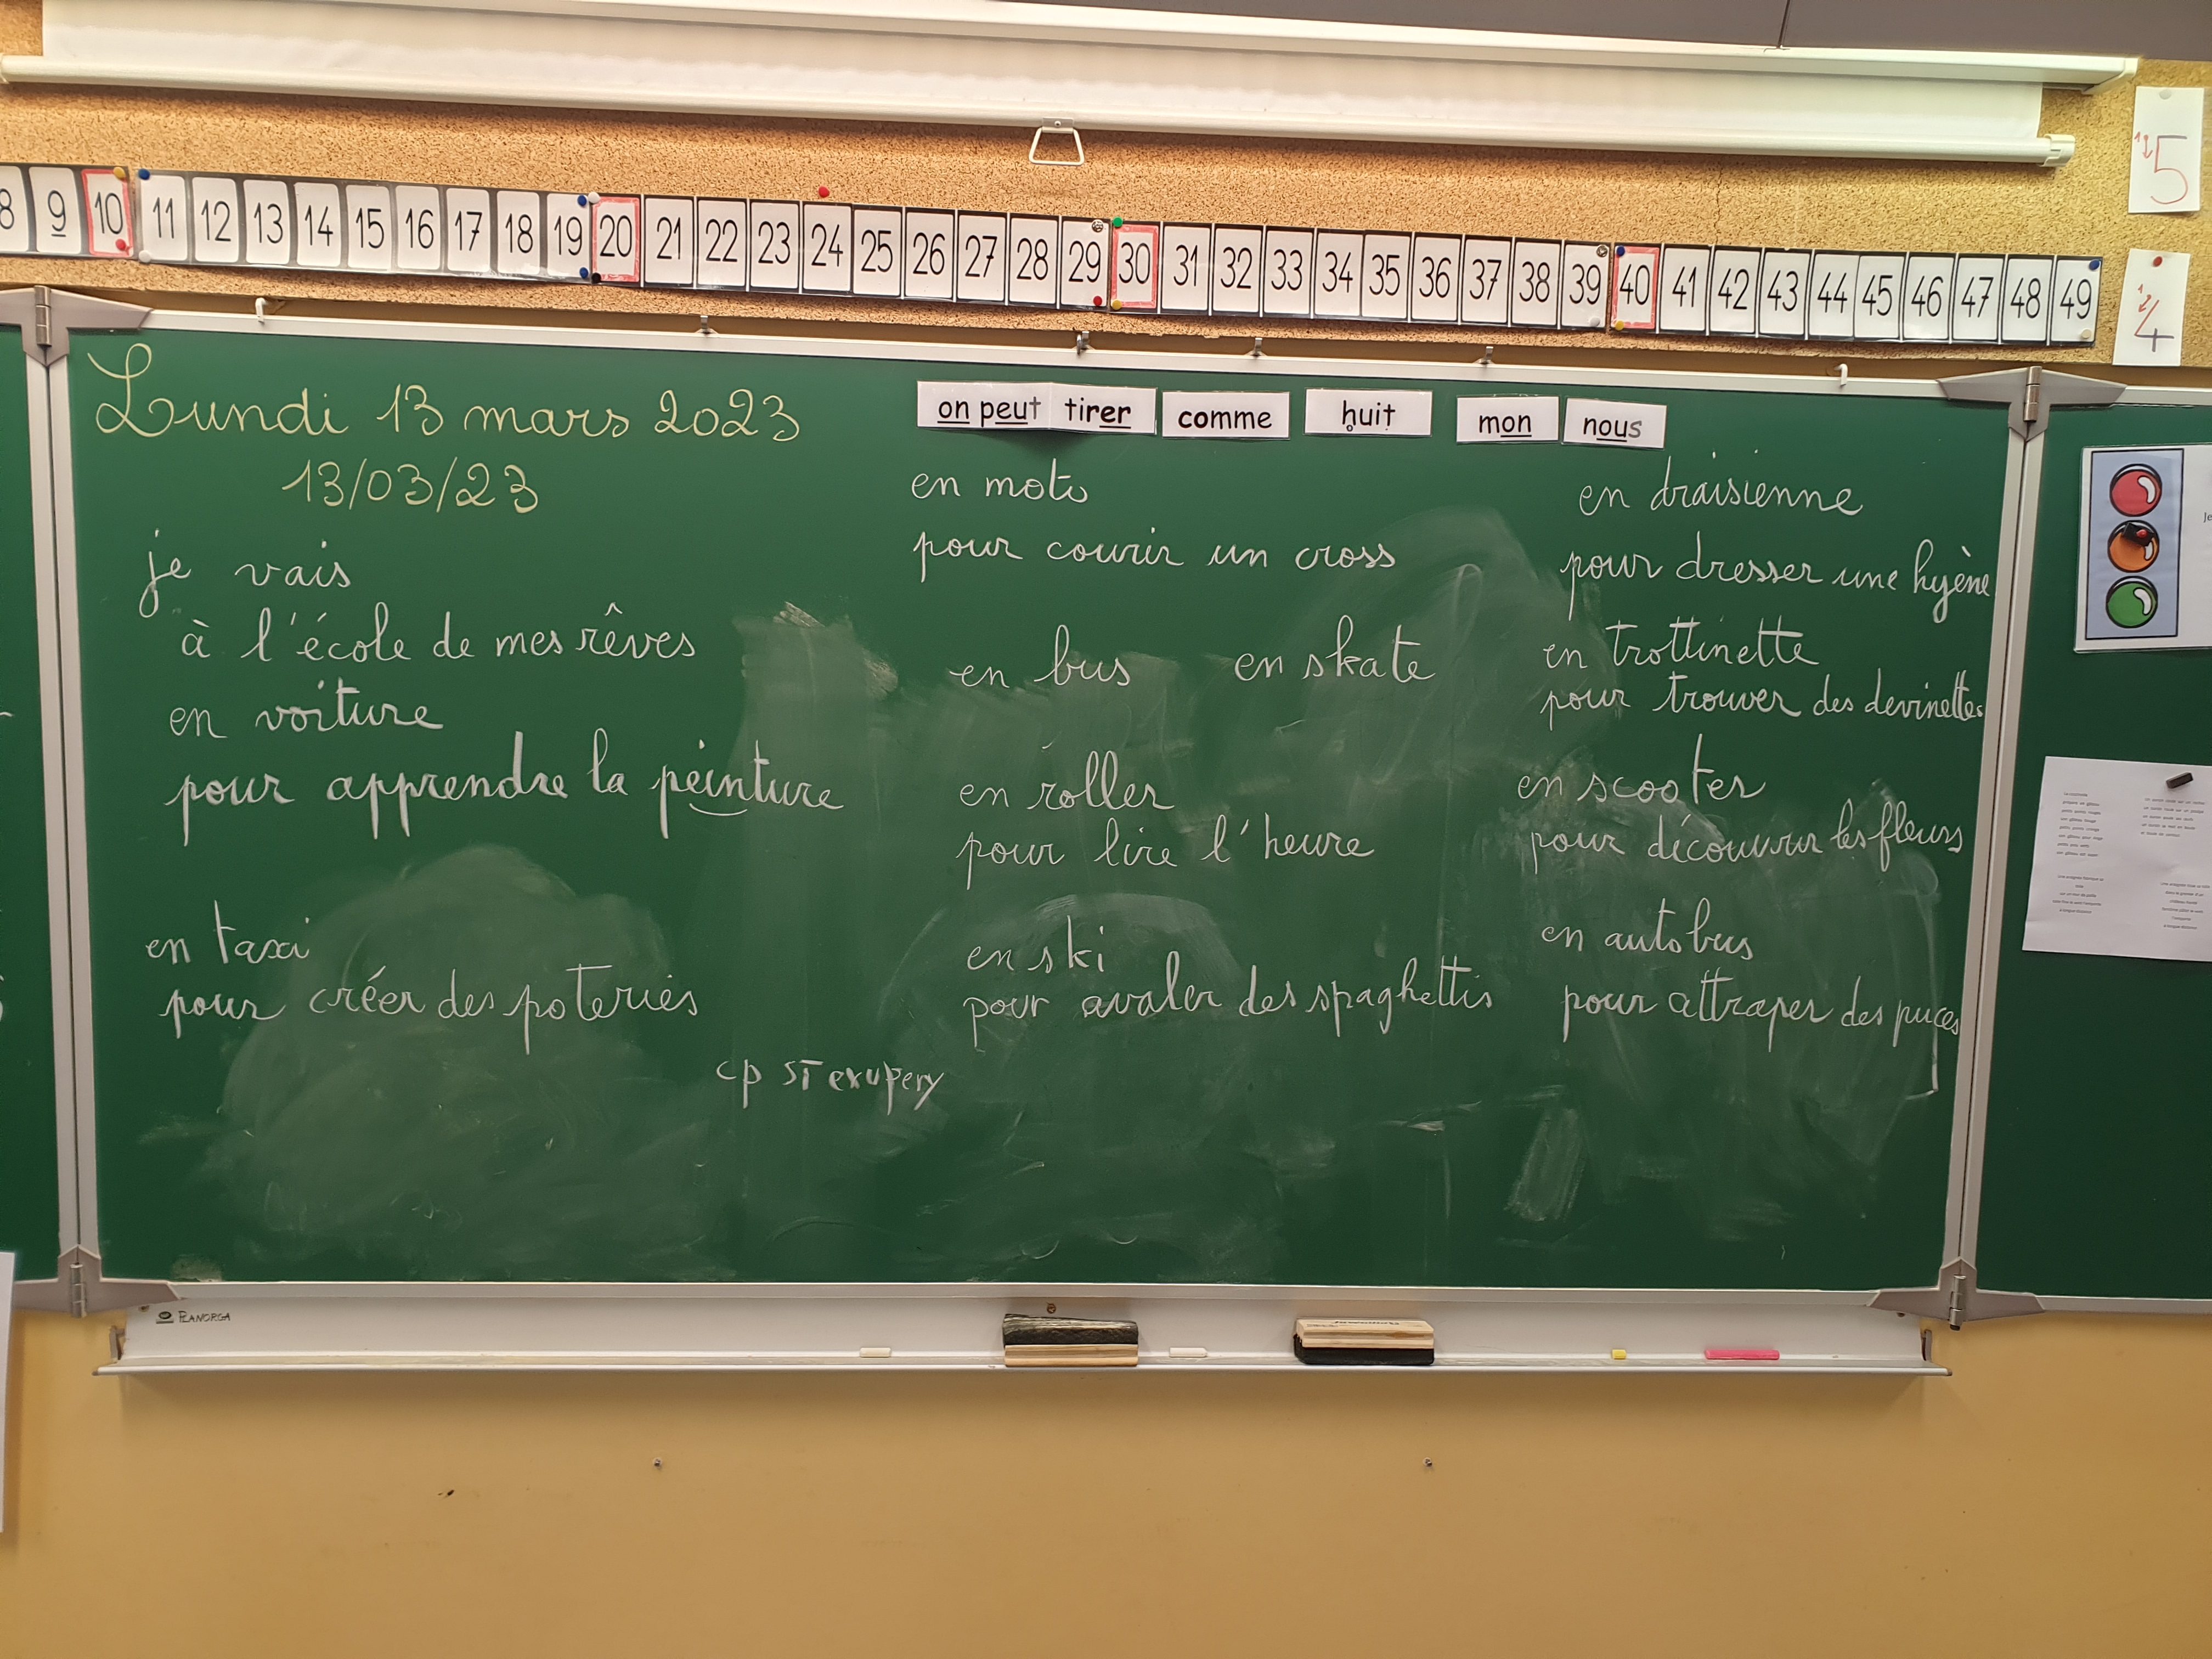 8 9 10 11 12 13 14 15 16 17 18 19 20 21 22 23 24 25 26 27 28 29 30 31 32 33 34 35 36 37 38 39 40 41 42 43 44 45 46 47 48 49
5
4
Lundi 13 mars 2023
13/03/23
je vais
à l'école de mes rêves
en voiture
pour apprendre la peinture
en taxi
pour créer des poteries
cp ST exupery
on peut tirer comme huit mon nous
en moto
pour courir un cross
en bus en skate
en roller
pour lire l'heure
en ski
pour avaler des spaghettis
en draisienne
pour dresser une hyène
en trottinette
pour trouver des devinettes
en scooter
pour découvrir les fleurs
en autobus
pour attraper des puces
Je
PLANORGA